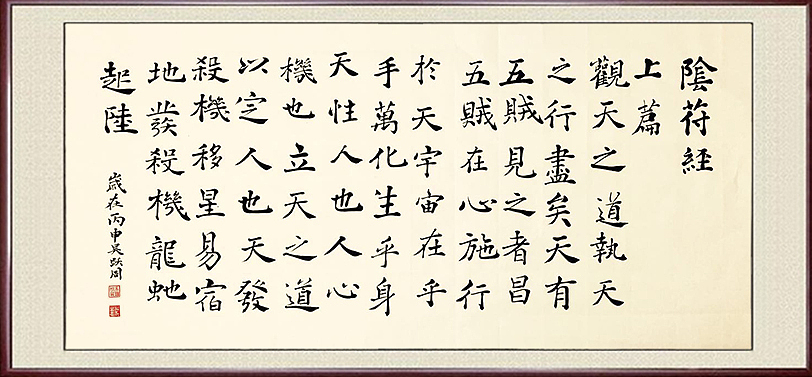 陰苻經
上篇
觀天之道執天
之行盡矣天有
五賊見之者昌
五賊在心施行
於天宇宙在乎
手萬化生乎身
天性人也人心
機也立天之道
以定人也天發
殺機移星易宿
地發殺機龍虵
起陸
歲在丙申吴跃